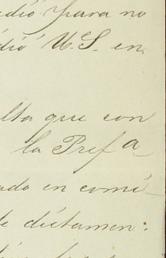 dió para no
dió U.S. en
lta que con
la Prefa
ado en comi-
te dictamen: